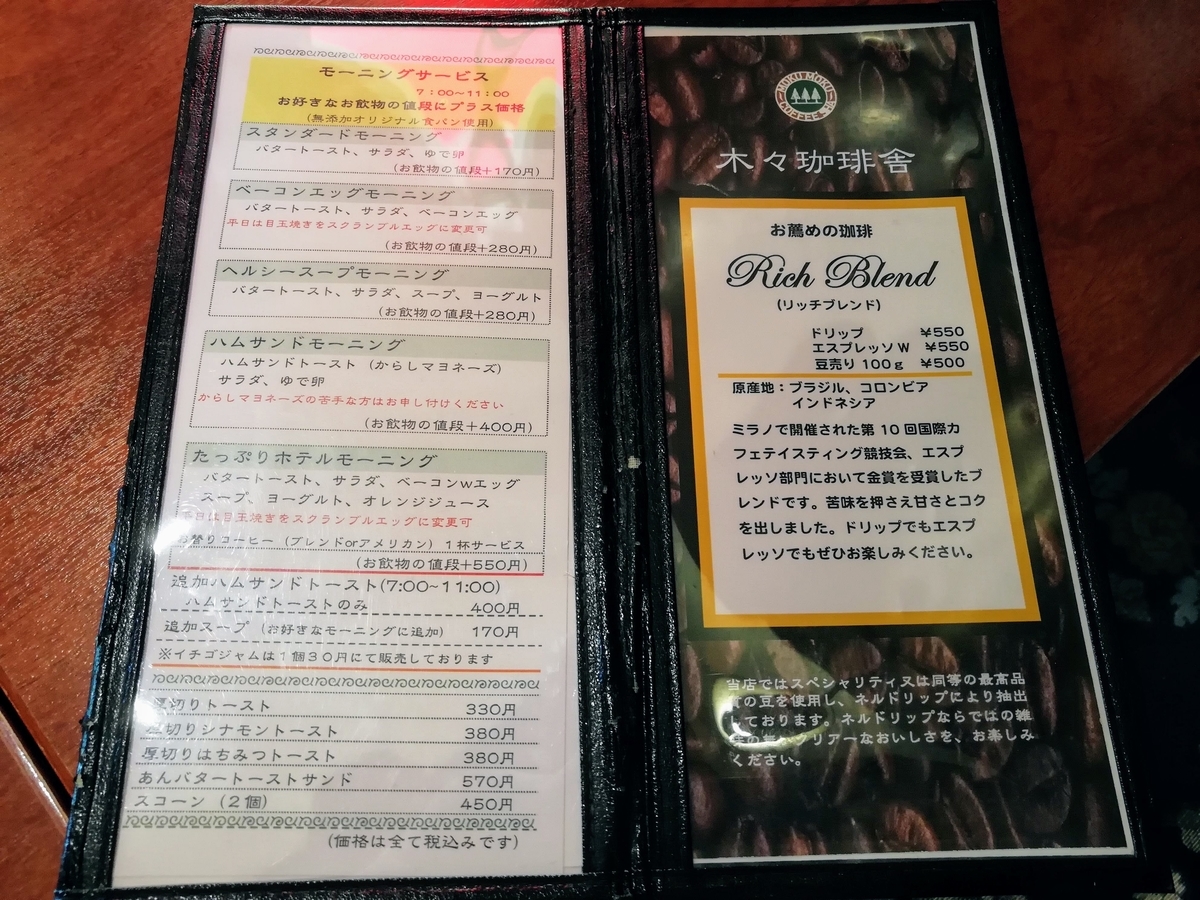 モーニングサービス
7：00～11：00
お好きなお飲物の値段にプラス価格
(無添加オリジナル食パン使用)
スタンダードモーニング
バタートースト、サラダ、ゆで卵
(お飲物の値段+170円)
ベーコンエッグモーニング
バタートースト、サラダ、ベーコンエッグ
平日は目玉焼きをスクランブルエッグに変更可
(お飲物の値段+280円)
ヘルシースープモーニング
バタートースト、サラダ、スープ、ヨーグルト
(お飲物の値段+280円)
ハムサンドモーニング
ハムサンドトースト（からしマヨネーズ）
サラダ、ゆで卵
からしマヨネーズの苦手な方はお申し付けください
(お飲物の値段+400円)
たっぷりホテルモーニング
バタートースト、サラダ、ベーコンwエッグ
スープ、ヨーグルト、オレンジジュース
平日は目玉焼きをスクランブルエッグに変更可
お替りコーヒー（ブレンドorアメリカン）１杯サービス
(お飲物の値段+550円)
追加ハムサンドトースト(7:00~11:00)
ハムサンドトーストのみ 400円
追加スープ（お好きなモーニングに追加） 170円
※イチゴジャムは１個３０円にて販売しております
厚切りトースト 330円
厚切りシナモントースト 380円
厚切りはちみつトースト 380円
あんバタートーストサンド 570円
スコーン（２個） 450円
(価格は全て税込みです)
MOKU MOKU
COFFEE
木々珈琲舎
お薦めの珈琲
Rich Blend
(リッチブレンド)
ドリップ ￥550
エスプレッソ W ￥550
豆売り 100g ￥500
原産地：ブラジル、コロンビア
インドネシア
ミラノで開催された第 10 回国際カ
フェテイスティング競技会、エスプ
レッソ部門において金賞を受賞したブ
レンドです。苦味を押さえ甘さとコク
を出しました。ドリップでもエスプ
レッソでもぜひお楽しみください。
当店ではスペシャリティ又は同等の最高品
質の豆を使用し、ネルドリップにより抽出
しております。ネルドリップならではの雑
クリアーなおいしさを、お楽しみ
ください。